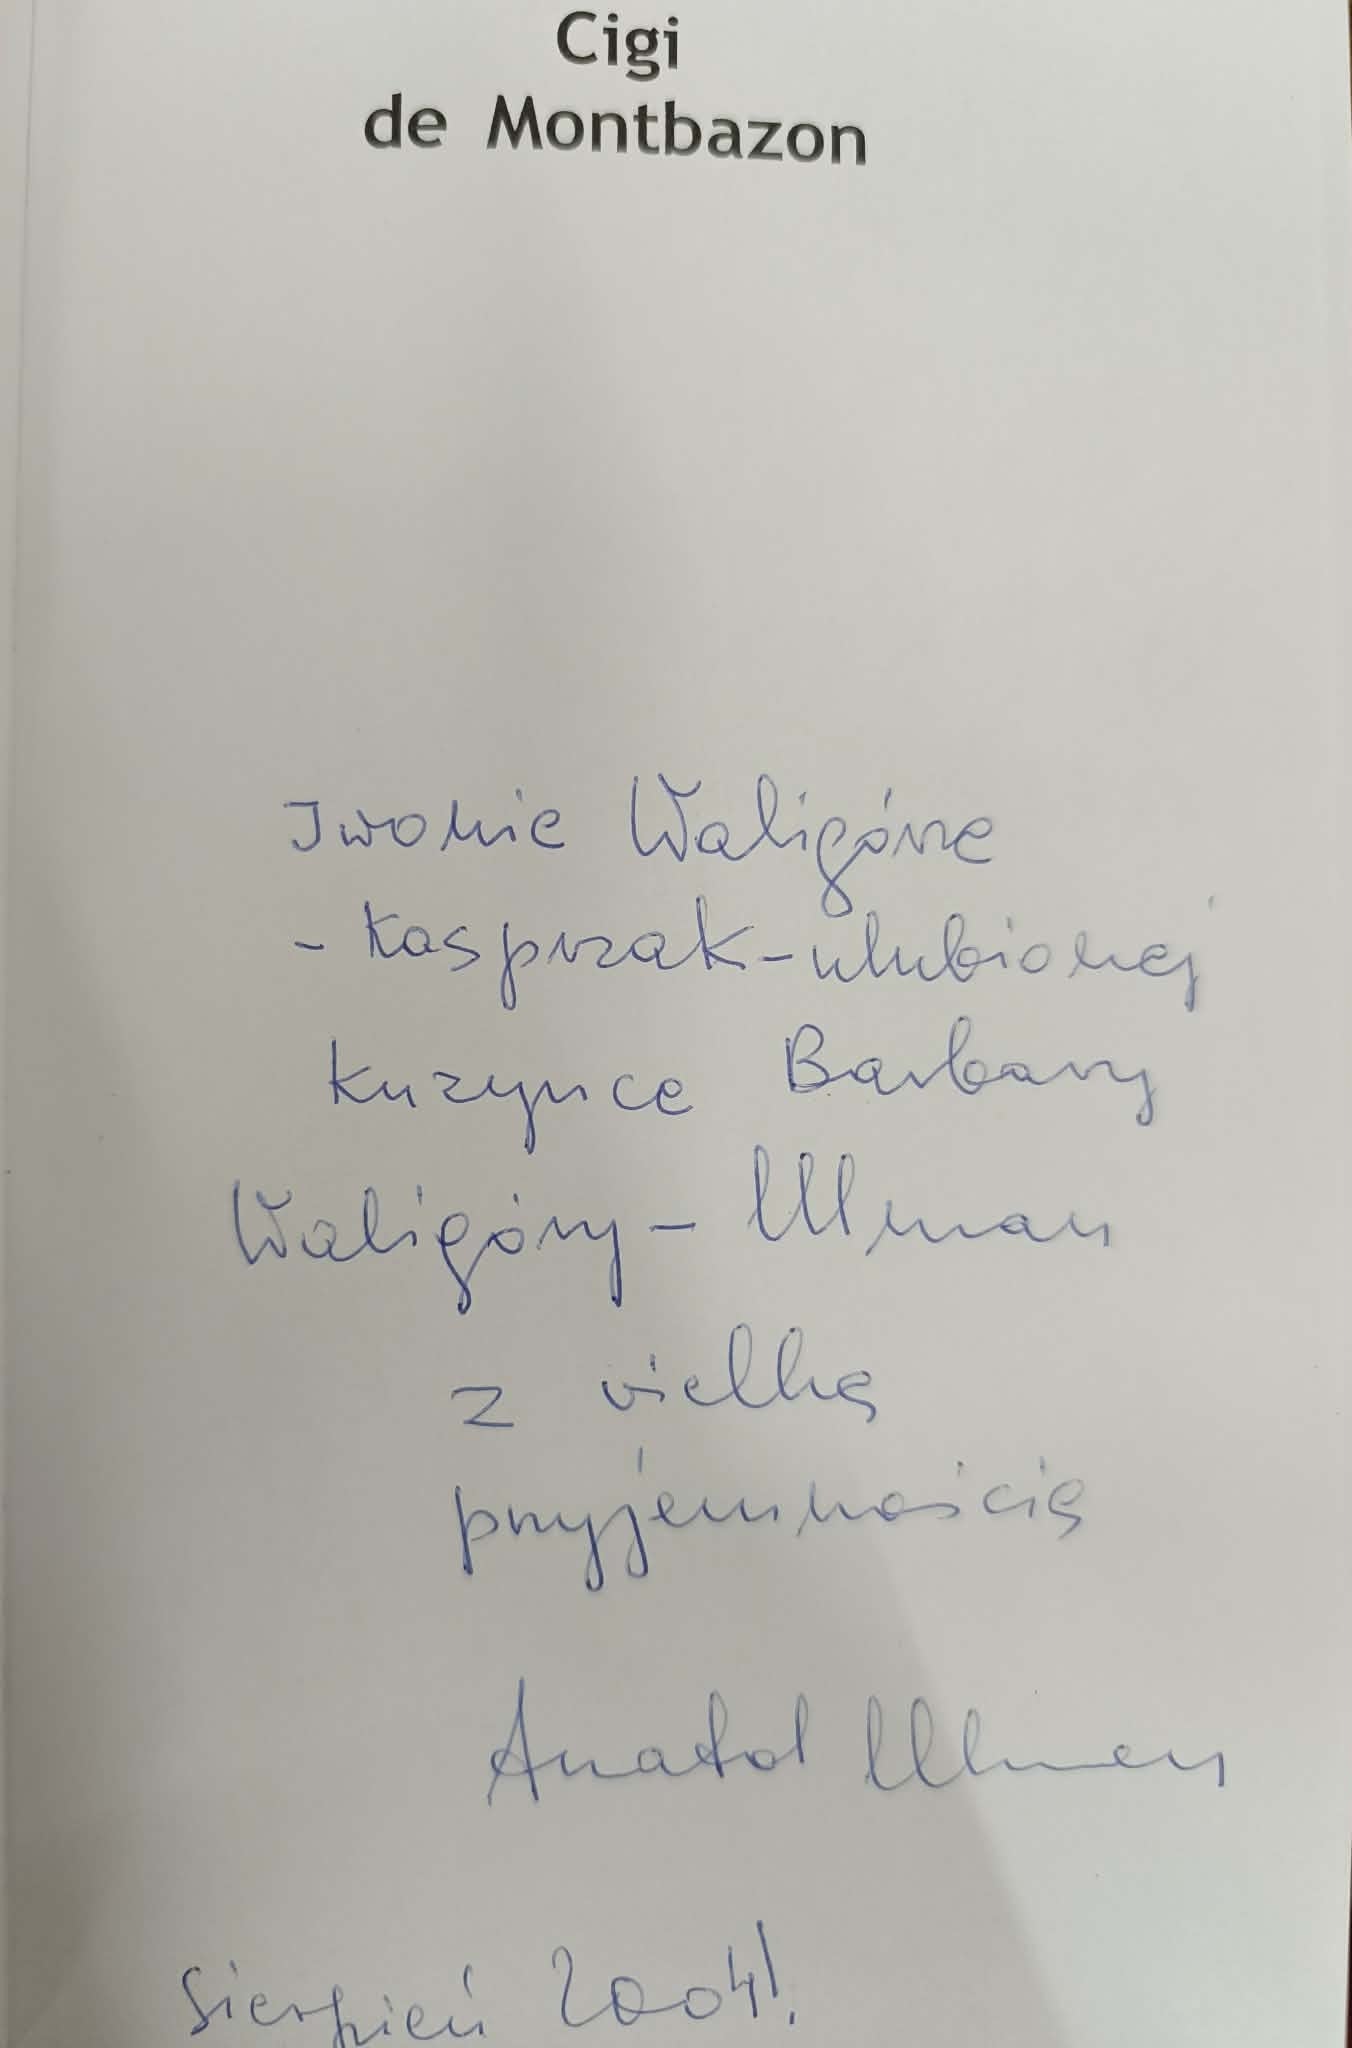 Cigi
de Montbazon
Iwonie Waligórze
- Kasprzak - ulubionej
kuzynce Barbary
Waligóry - Ulman
z wielką
przyjemnością
Anatol Ulman
Sierpień 2004!